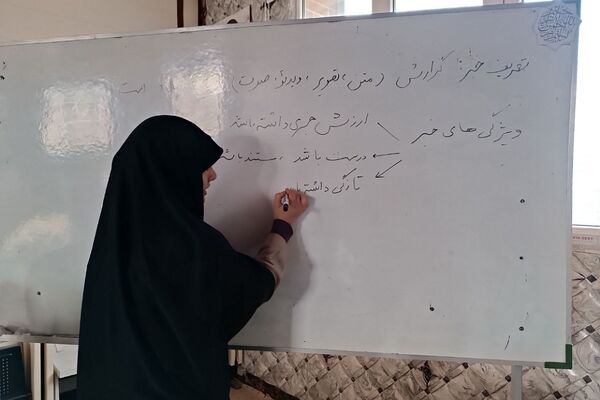 تعریف خبر: گزارش (متن، تصویر، ویدئو، صوت) است
ویژگی های خبر
ارزش خبری داشته باشد
درست باشد، مستند باشد
تازگی داشته با